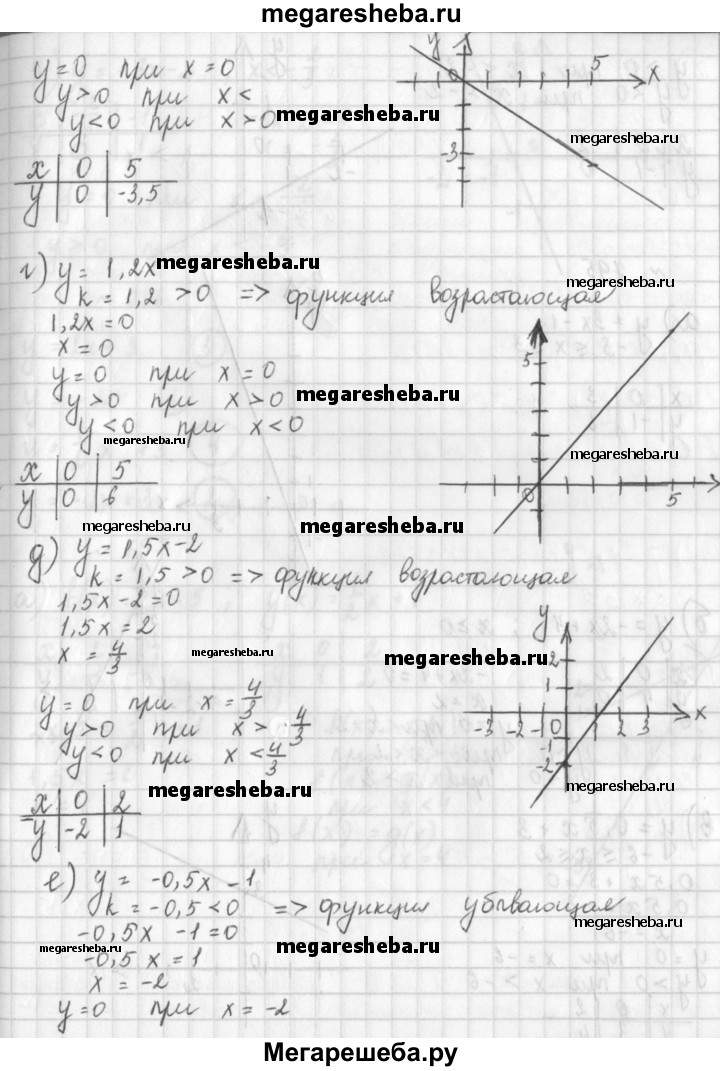 megaresheba.ru
y=0 при x=0
y>0 при x<
y<0 при x>0 megaresheba.ru
x 0 5
y 0 -3,5
y x 5 -3 0
megaresheba.ru
г) y = 1,2x megaresheba.ru
k = 1,2 >0 => функция возрастающая
megaresheba.ru
1,2x=0
x=0
y=0 при x=0
y>0 при x>0 megaresheba.ru
y<0 при x<0
megaresheba.ru
x 0 5
y 0 6
megaresheba.ru
5 0 5
megaresheba.ru
megaresheba.ru
д) y = 1,5x-2
k = 1,5 >0 => функция возрастающая
1,5x-2=0
1,5x=2
x = 4/3 megaresheba.ru
megaresheba.ru
y=0 при x=4/3
y>0 при x> 4/3
y<0 при x<4/3
y 2 1 x
-3 -2 -1 0 1 2 3
-1
-2
x 0 2 megaresheba.ru
y -2 1
megaresheba.ru
е) y = -0,5x -1
k = -0,5 <0 => функция убывающая
megaresheba.ru
-0,5x -1=0
megaresheba.ru
-0,5x=1 megaresheba.ru
x = -2
y=0 при x = -2
Мегарешеба.ру